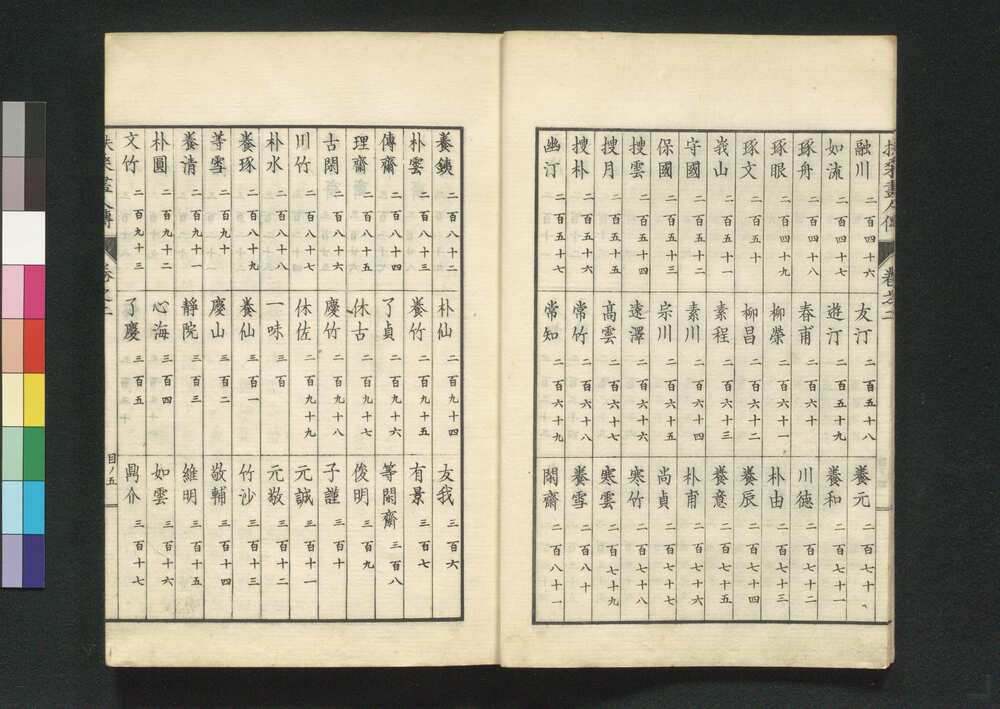 扶桑畫人傳 卷之二
融川 二百四十六
如流 二百四十七
琢舟 二百四十八
琢眼 二百四十九
琢文 二百五十
峩山 二百五十一
守國 二百五十二
保國 二百五十三
捜雲 二百五十四
捜月 二百五十五
捜朴 二百五十六
幽汀 二百五十七
友汀 二百五十八
遊汀 二百五十九
春甫 二百六十
柳榮 二百六十一
柳昌 二百六十二
素程 二百六十三
素川 二百六十四
宗川 二百六十五
遠澤 二百六十六
高雲 二百六十七
常竹 二百六十八
常知 二百六十九
養元 二百七十
養和 二百七十一
川德 二百七十二
朴由 二百七十三
養辰 二百七十四
養意 二百七十五
朴甫 二百七十六
尚貞 二百七十七
寒竹 二百七十八
寒雲 二百七十九
養雪 二百八十
閑齋 二百八十一
養銕 二百八十二
朴雲 二百八十三
傳齋 二百八十四
理齋 二百八十五
古閑 二百八十六
川竹 二百八十七
朴水 二百八十八
養琢 二百八十九
等雪 二百九十
養清 二百九十一
朴圓 二百九十二
文竹 二百九十三
朴仙 二百九十四
養竹 二百九十五
了貞 二百九十六
休古 二百九十七
慶竹 二百九十八
休佐 二百九十九
一味 三百
養仙 三百一
慶山 三百二
靜院 三百三
心海 三百四
了慶 三百五
友我 三百六
有景 三百七
等閑齋 三百八
俊明 三百九
子謹 三百十
元誠 三百十一
元敬 三百十二
竹沙 三百十三
敬輔 三百十四
維明 三百十五
如雲 三百十六
鼎介 三百十七
扶桑畫人傳 卷之二 目ノ五